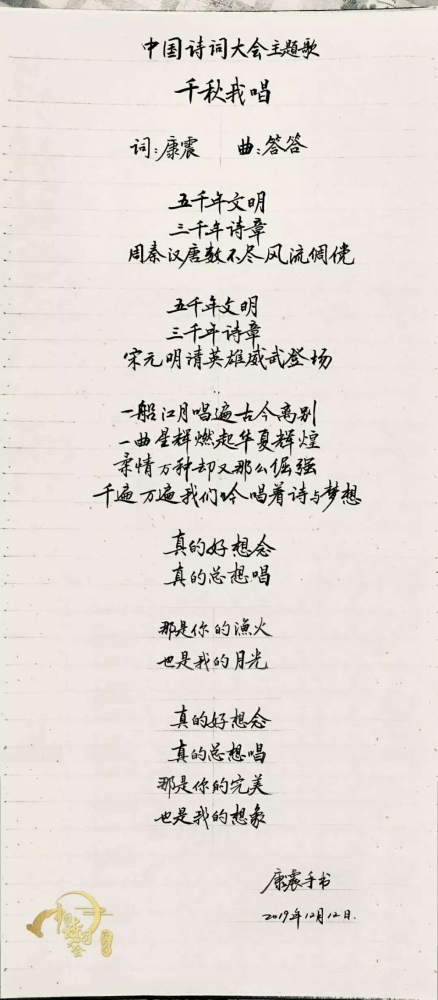 中国诗词大会主题歌
千秋我唱
词:康震 曲:答答
五千年文明
三千年诗章
周秦汉唐数不尽风流倜傥
五千年文明
三千年诗章
宋元明清英雄威武登场
一船江月唱遍古今离别
一曲星辉燃起华夏辉煌
柔情万种却又那么倔强
千遍万遍我们吟唱着诗与梦想
真的好想念
真的总想唱
那是你的渔火
也是我的月光
真的好想念
真的总想唱
那是你的完美
也是我的想象
康震手书
2019年12月12日.